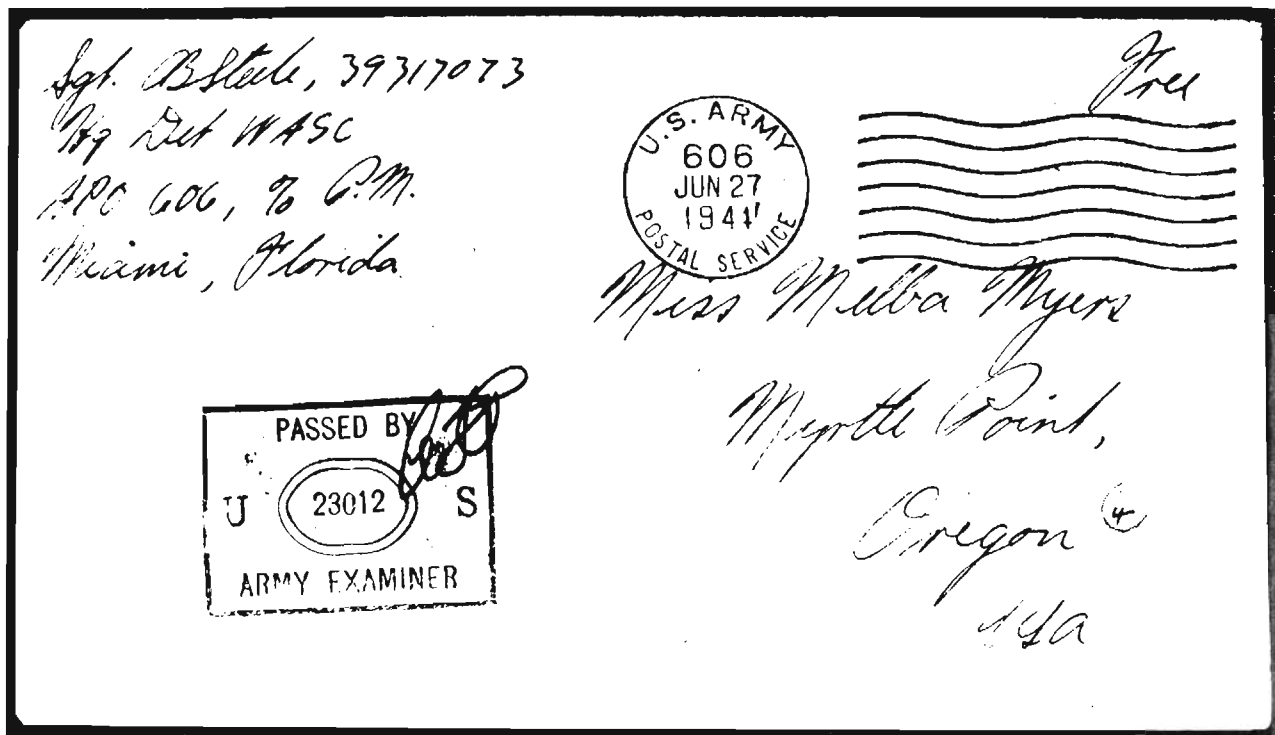 Sgt. B Steele, 39317073
Hq Det WASC
APO 606, % P.M.
Miami, Florida
Free
U.S. ARMY
606
JUN 27
POSTAL SERVICE
Miss Melba Myers
Myrtle Point,
Oregon
4
USA
PASSED BY
U 23012 S
ARMY EXAMINER